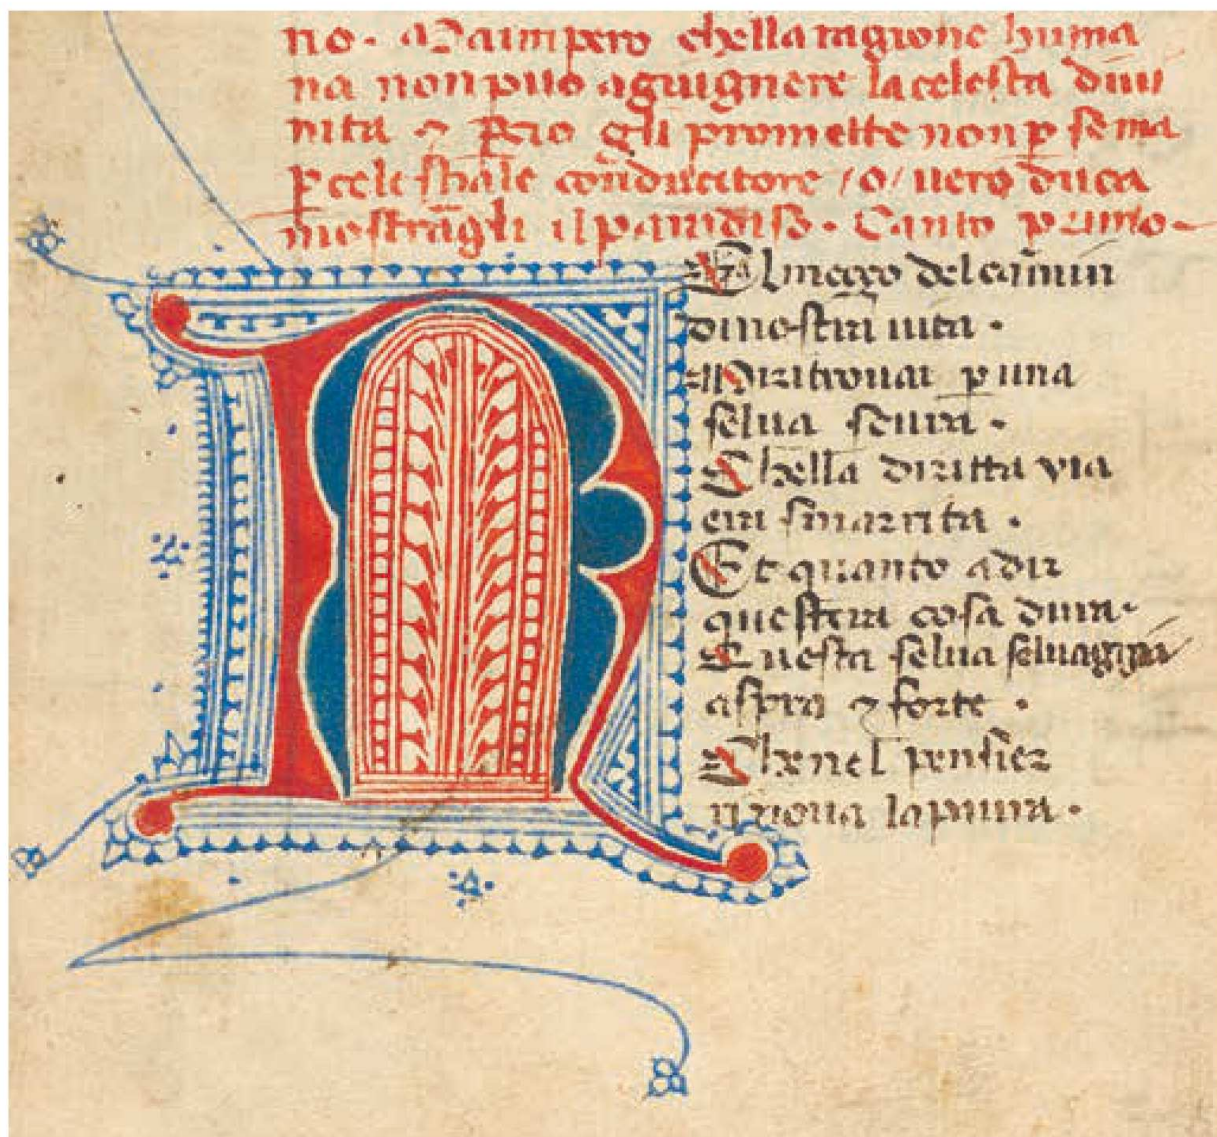 no. Maimpero chella ragione huma
na non puo agiugnere la celesta diui
nita ⁊ ꝑcio gli promette non ꝑ se ma
ꝑ celestiale conducitore /o/ uero duca
mostragli il paradiso. Canto primo.
N
El mezo del camin
di nostra uita .
Mi ritrouai ꝑ una
selua scura .
Chella diritta via
era smarrita .
Et quanto a dir
quel era cosa dura.
Questa selua seluaggia
aspra ⁊ forte .
Che nel pensier
rinoua la paura .